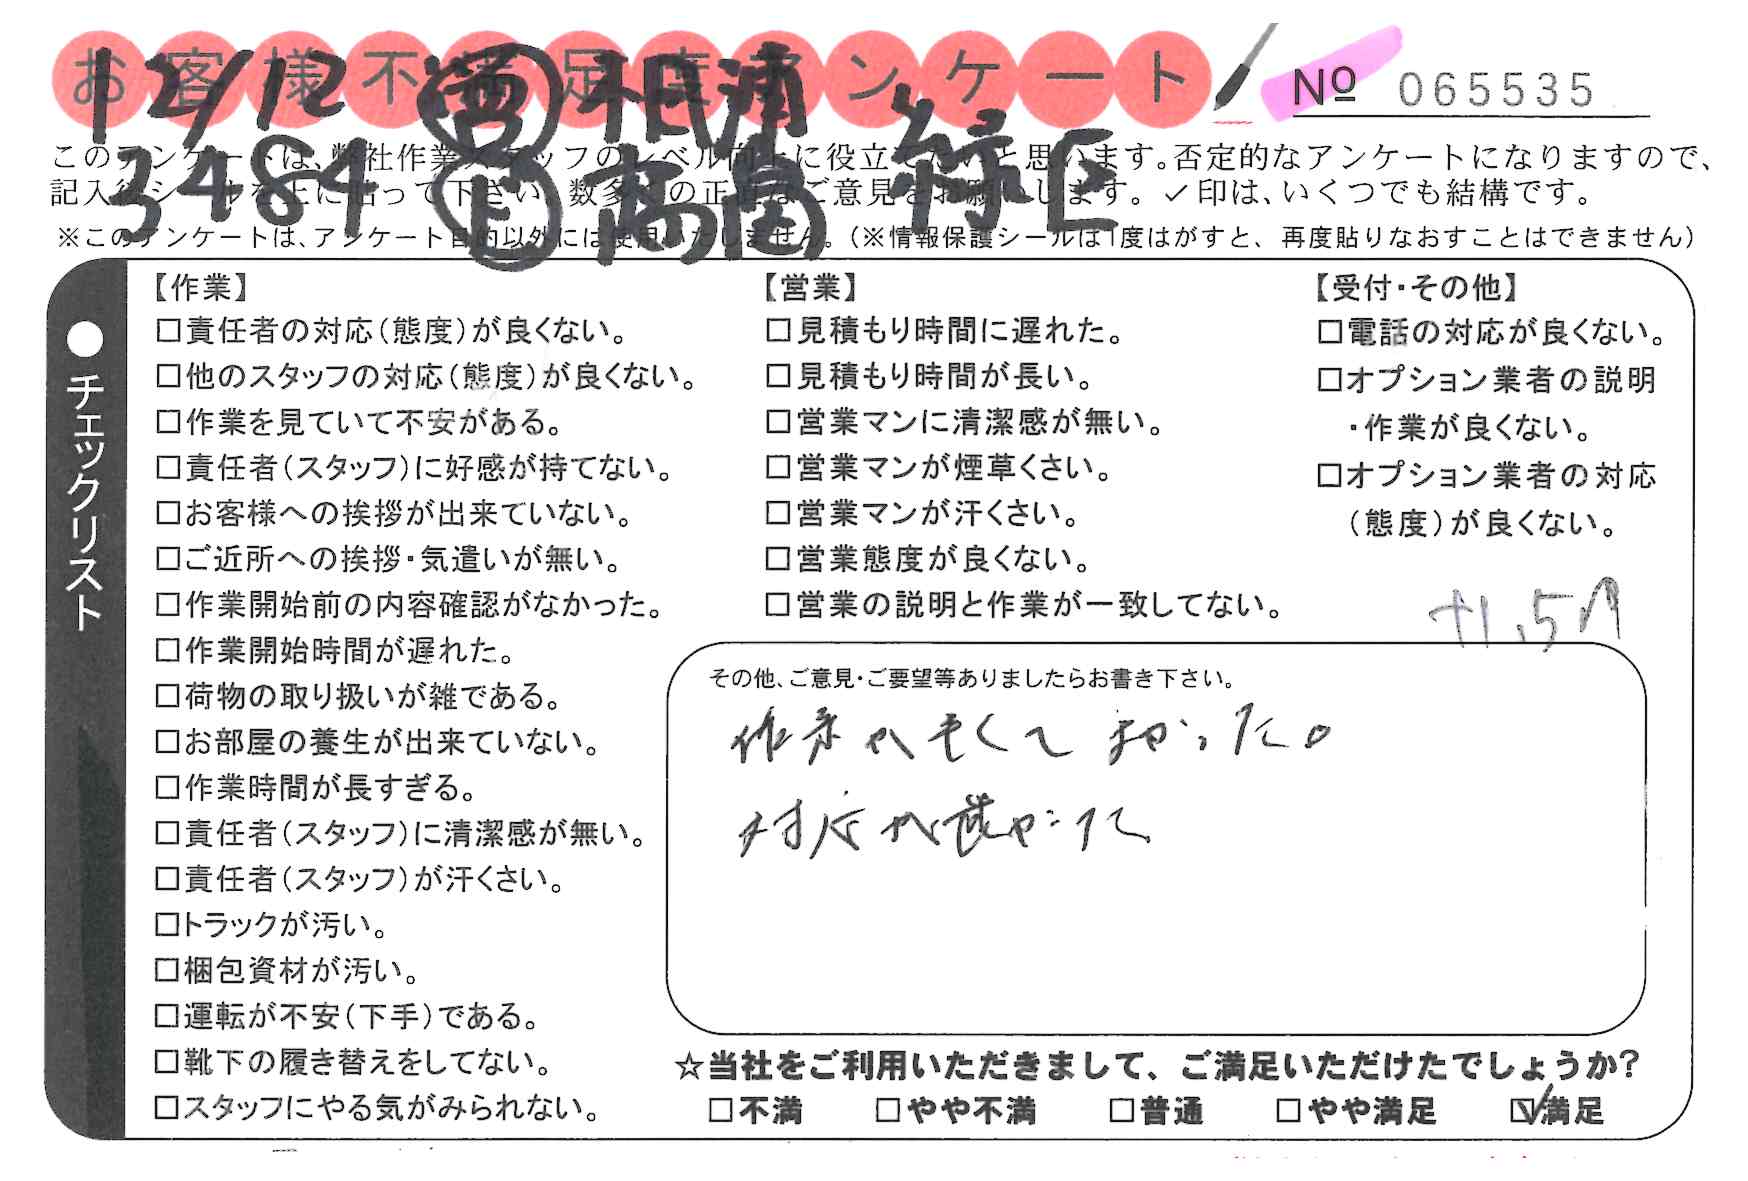 お客様不満足度アンケート
No 065535
12/12 営 根浦
3484 上 高畠 緑区
このアンケートは、弊社作業スタッフのレベル向上に役立てたいと思います。否定的なアンケートになりますので、
記入後シールを上に貼って下さい。数多くの正直なご意見をお願いします。✓印は、いくつでも結構です。
※このアンケートは、アンケート目的以外には使用いたしません。（※情報保護シールは1度はがすと、再度貼りなおすことはできません）
●チェックリスト
【作業】
□責任者の対応（態度）が良くない。
□他のスタッフの対応（態度）が良くない。
□作業を見ていて不安がある。
□責任者（スタッフ）に好感が持てない。
□お客様への挨拶が出来ていない。
□ご近所への挨拶・気遣いが無い。
□作業開始前の内容確認がなかった。
□作業開始時間が遅れた。
□荷物の取り扱いが雑である。
□お部屋の養生が出来ていない。
□作業時間が長すぎる。
□責任者（スタッフ）に清潔感が無い。
□責任者（スタッフ）が汗くさい。
□トラックが汚い。
□梱包資材が汚い。
□運転が不安（下手）である。
□靴下の履き替えをしてない。
□スタッフにやる気がみられない。
【営業】
□見積もり時間に遅れた。
□見積もり時間が長い。
□営業マンに清潔感が無い。
□営業マンが煙草くさい。
□営業マンが汗くさい。
□営業態度が良くない。
□営業の説明と作業が一致してない。
【受付・その他】
□電話の対応が良くない。
□オプション業者の説明
・作業が良くない。
□オプション業者の対応
（態度）が良くない。
+1.5
その他、ご意見・ご要望等ありましたらお書き下さい。
作業が早くて よかった。
対応が良かった
☆当社をご利用いただきまして、ご満足いただけたでしょうか？
□不満 □やや不満 □普通 □やや満足 ☑満足